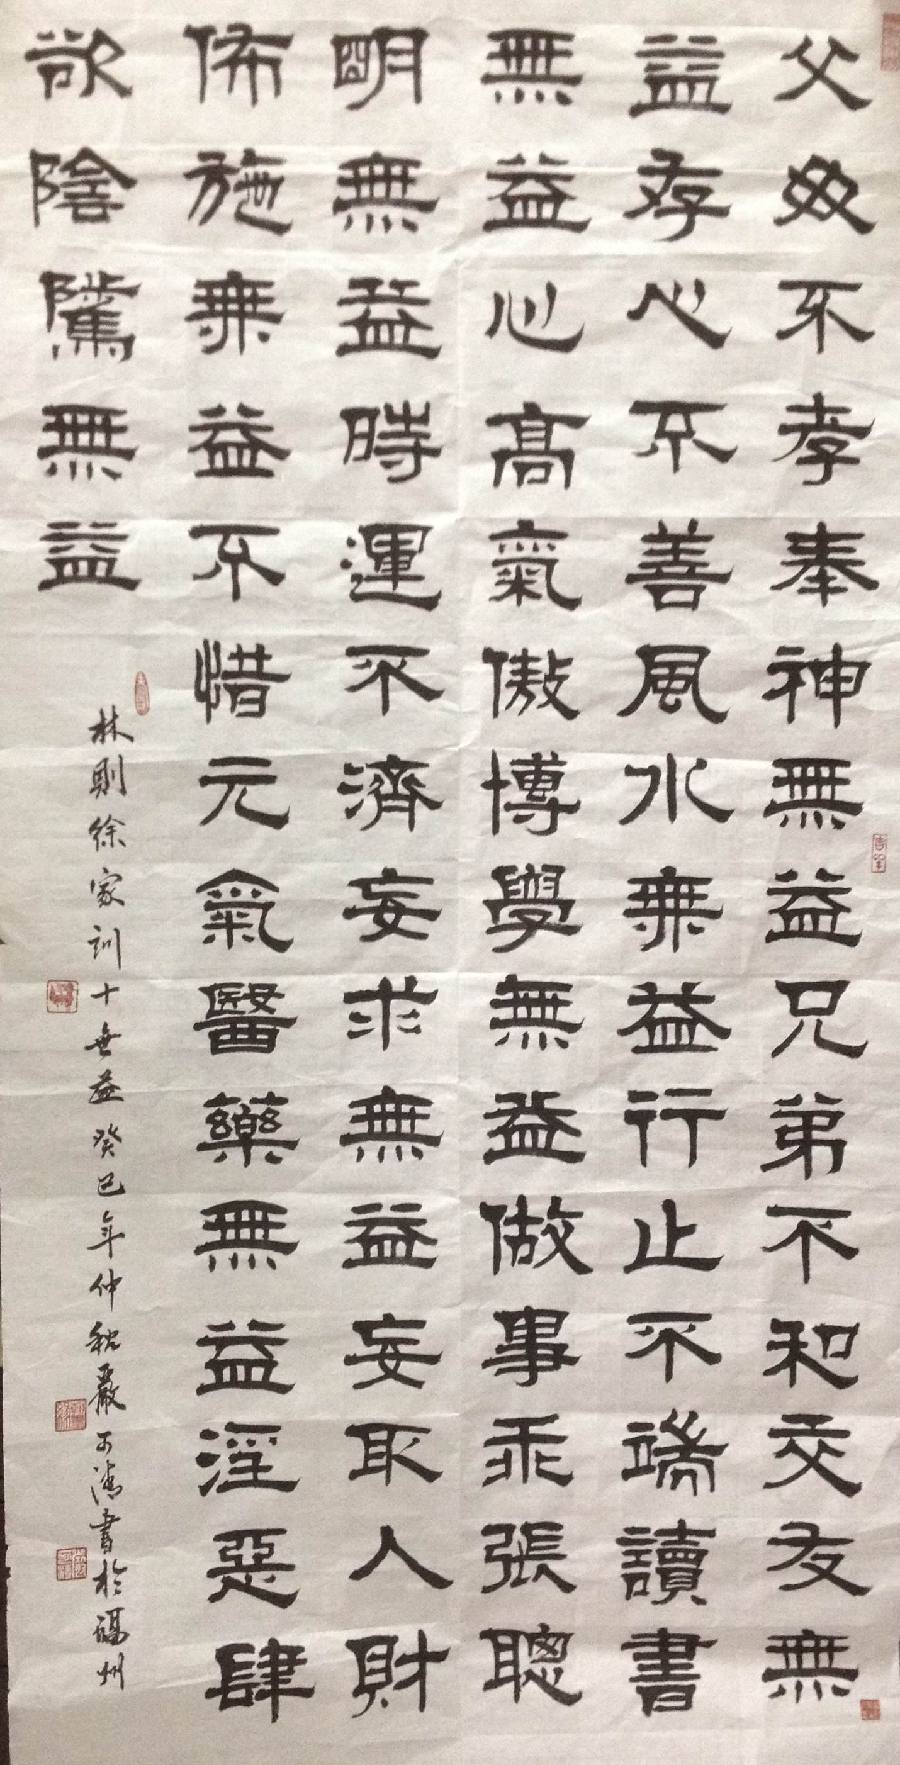 父母不孝奉神無益兄弟不和交友無
益存心不善風水無益行止不端讀書
無益心高氣傲博學無益做事乖張聰
明無益時運不濟妄求無益妄取人財
佈施無益不惜元氣醫藥無益淫惡肆
欲陰騭無益
林則徐家訓十無益癸巳年仲秋嚴可清書於福州